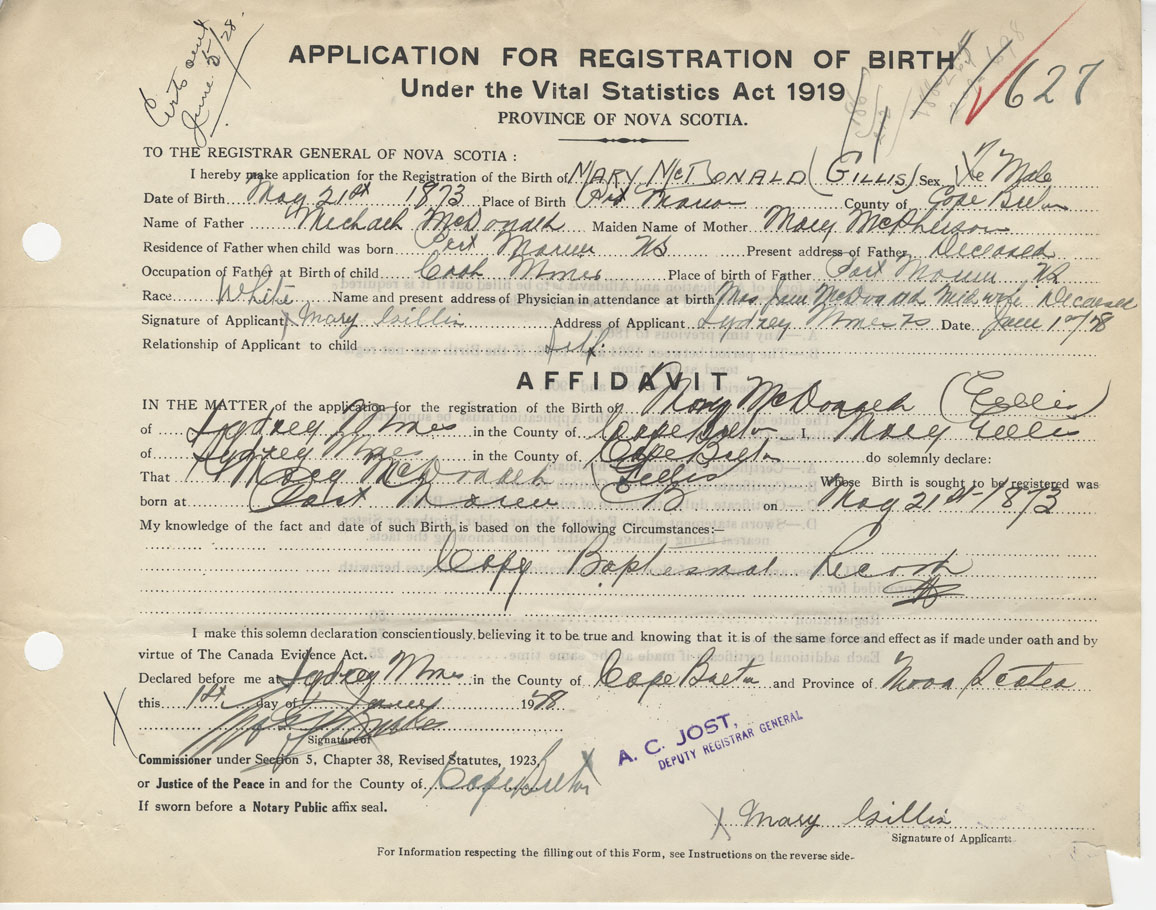 Certs sent
June 5/28
627
APPLICATION FOR REGISTRATION OF BIRTH
Under the Vital Statistics Act 1919
PROVINCE OF NOVA SCOTIA.
TO THE REGISTRAR GENERAL OF NOVA SCOTIA :
I hereby make application for the Registration of the Birth of MARY MCDONALD (GILLIS) Sex Fe Male
Date of Birth May 21st 1873 Place of Birth Port Morien County of Cape Breton
Name of Father Michael McDonald Maiden Name of Mother Mary McPherson
Residence of Father when child was born Port Morien NS Present address of Father, Deceased
Occupation of Father at Birth of child Coal Mines Place of birth of Father Port Morien NS
Race White Name and present address of Physician in attendance at birth Mrs. Jane McDonald Midwife Deceased
Signature of Applicant X Mary Gillis Address of Applicant Sydney Mines NS Date June 1st/28
Relationship of Applicant to child Self.
AFFIDAVIT
IN THE MATTER of the application for the registration of the Birth of Mary McDonald (Gillis)
of Sydney Mines in the County of Cape Breton I, Mary Gillis
of Sydney Mines in the County of Cape Breton do solemnly declare:
That Mary McDonald Gillis Whose Birth is sought to be registered was
born at Port Morien on May 21st-1873
My knowledge of the fact and date of such Birth is based on the following Circumstances:—
Copy Baptismal Record
I make this solemn declaration conscientiously believing it to be true and knowing that it is of the same force and effect as if made under oath and by
virtue of The Canada Evidence Act.
Declared before me at Sydney Mines in the County of Cape Breton and Province of Nova Scotia
this 1st day of June 1928
Signature of
Commissioner under Section 5, Chapter 38, Revised Statutes, 1923,
or Justice of the Peace in and for the County of Cape Breton X
If sworn before a Notary Public affix seal.
A. C. JOST,
DEPUTY REGISTRAR GENERAL
X Mary Gillis
Signature of Applicant
For Information respecting the filling out of this Form, see Instructions on the reverse side.